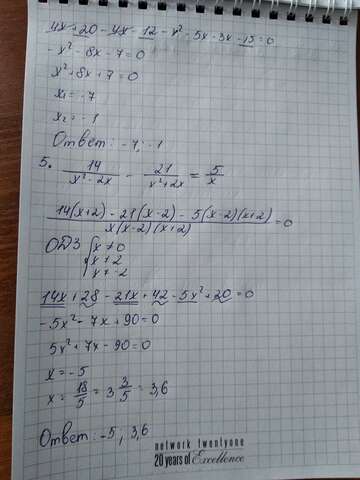 4x+20-4x-12-x²-5x-3x-15=0
-x²-8x-7=0
x²+8x+7=0
x₁=-7
x₂=-1
Ответ: -7; -1
5. 14/(x²-2x) - 21/(x²+2x) = 5/x
(14(x+2)-21(x-2)-5(x-2)(x+2))/(x(x-2)(x+2))=0
ОДЗ {x≠0
x≠2
x≠-2
14x+28-21x+42-5x²+20=0
-5x²-7x+90=0
5x²+7x-90=0
x=-5
x=18/5=3 3/5=3,6
Ответ: -5, 3,6
network twentyone
20 years of Excellence